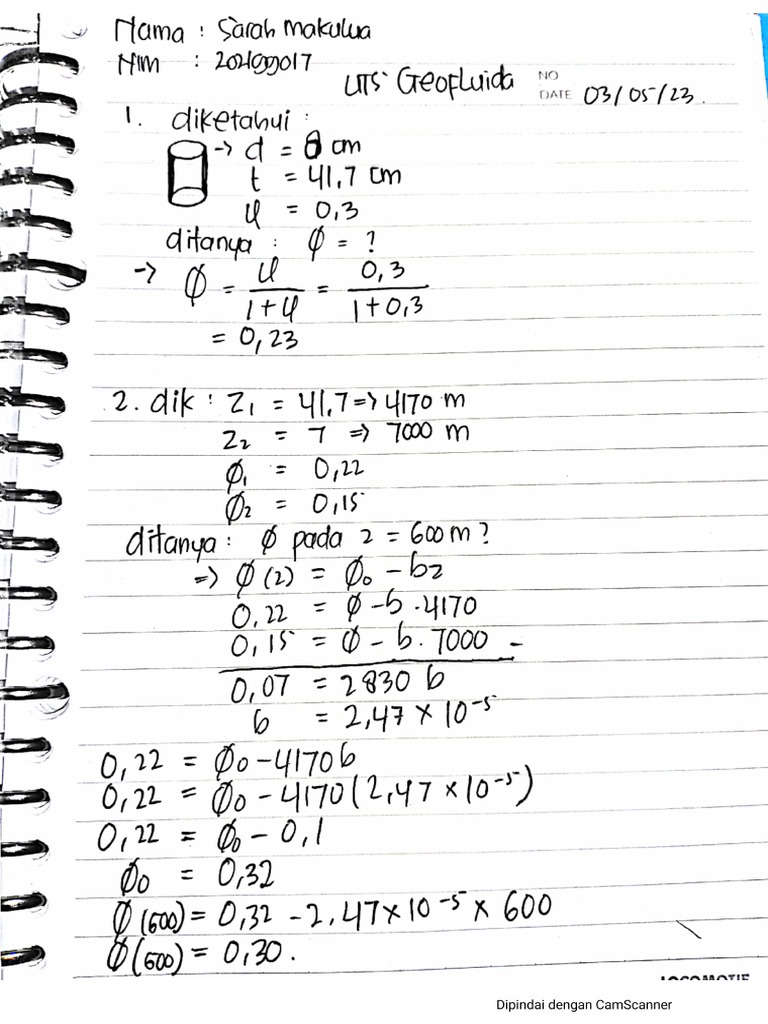 Nama : Sarah Makulua
NIM :
UTS Geofluida
NO
DATE 03/05/23
1. diketahui :
→ d = 8 cm
t = 41,7 cm
U = 0,3
ditanya : Ø = ?
→ Ø = U / 1+U = 0,3 / 1+0,3
= 0,23
2. dik : Z₁ = 41,7 => 4170 m
Z₂ = 7 => 7000 m
Ø₁ = 0,22
Ø₂ = 0,15
ditanya : Ø pada z = 600 m ?
=> Ø(z) = Ø₀ - bz
0,22 = Ø - b . 4170
0,15 = Ø - b . 7000 -
0,07 = 2830 b
b = 2,47 × 10⁻⁵
0,22 = Ø₀ - 4170b
0,22 = Ø₀ - 4170 (2,47 × 10⁻⁵)
0,22 = Ø₀ - 0,1
Ø₀ = 0,32
Ø(600) = 0,32 - 2,47 × 10⁻⁵ × 600
Ø(600) = 0,30.
Dipindai dengan CamScanner